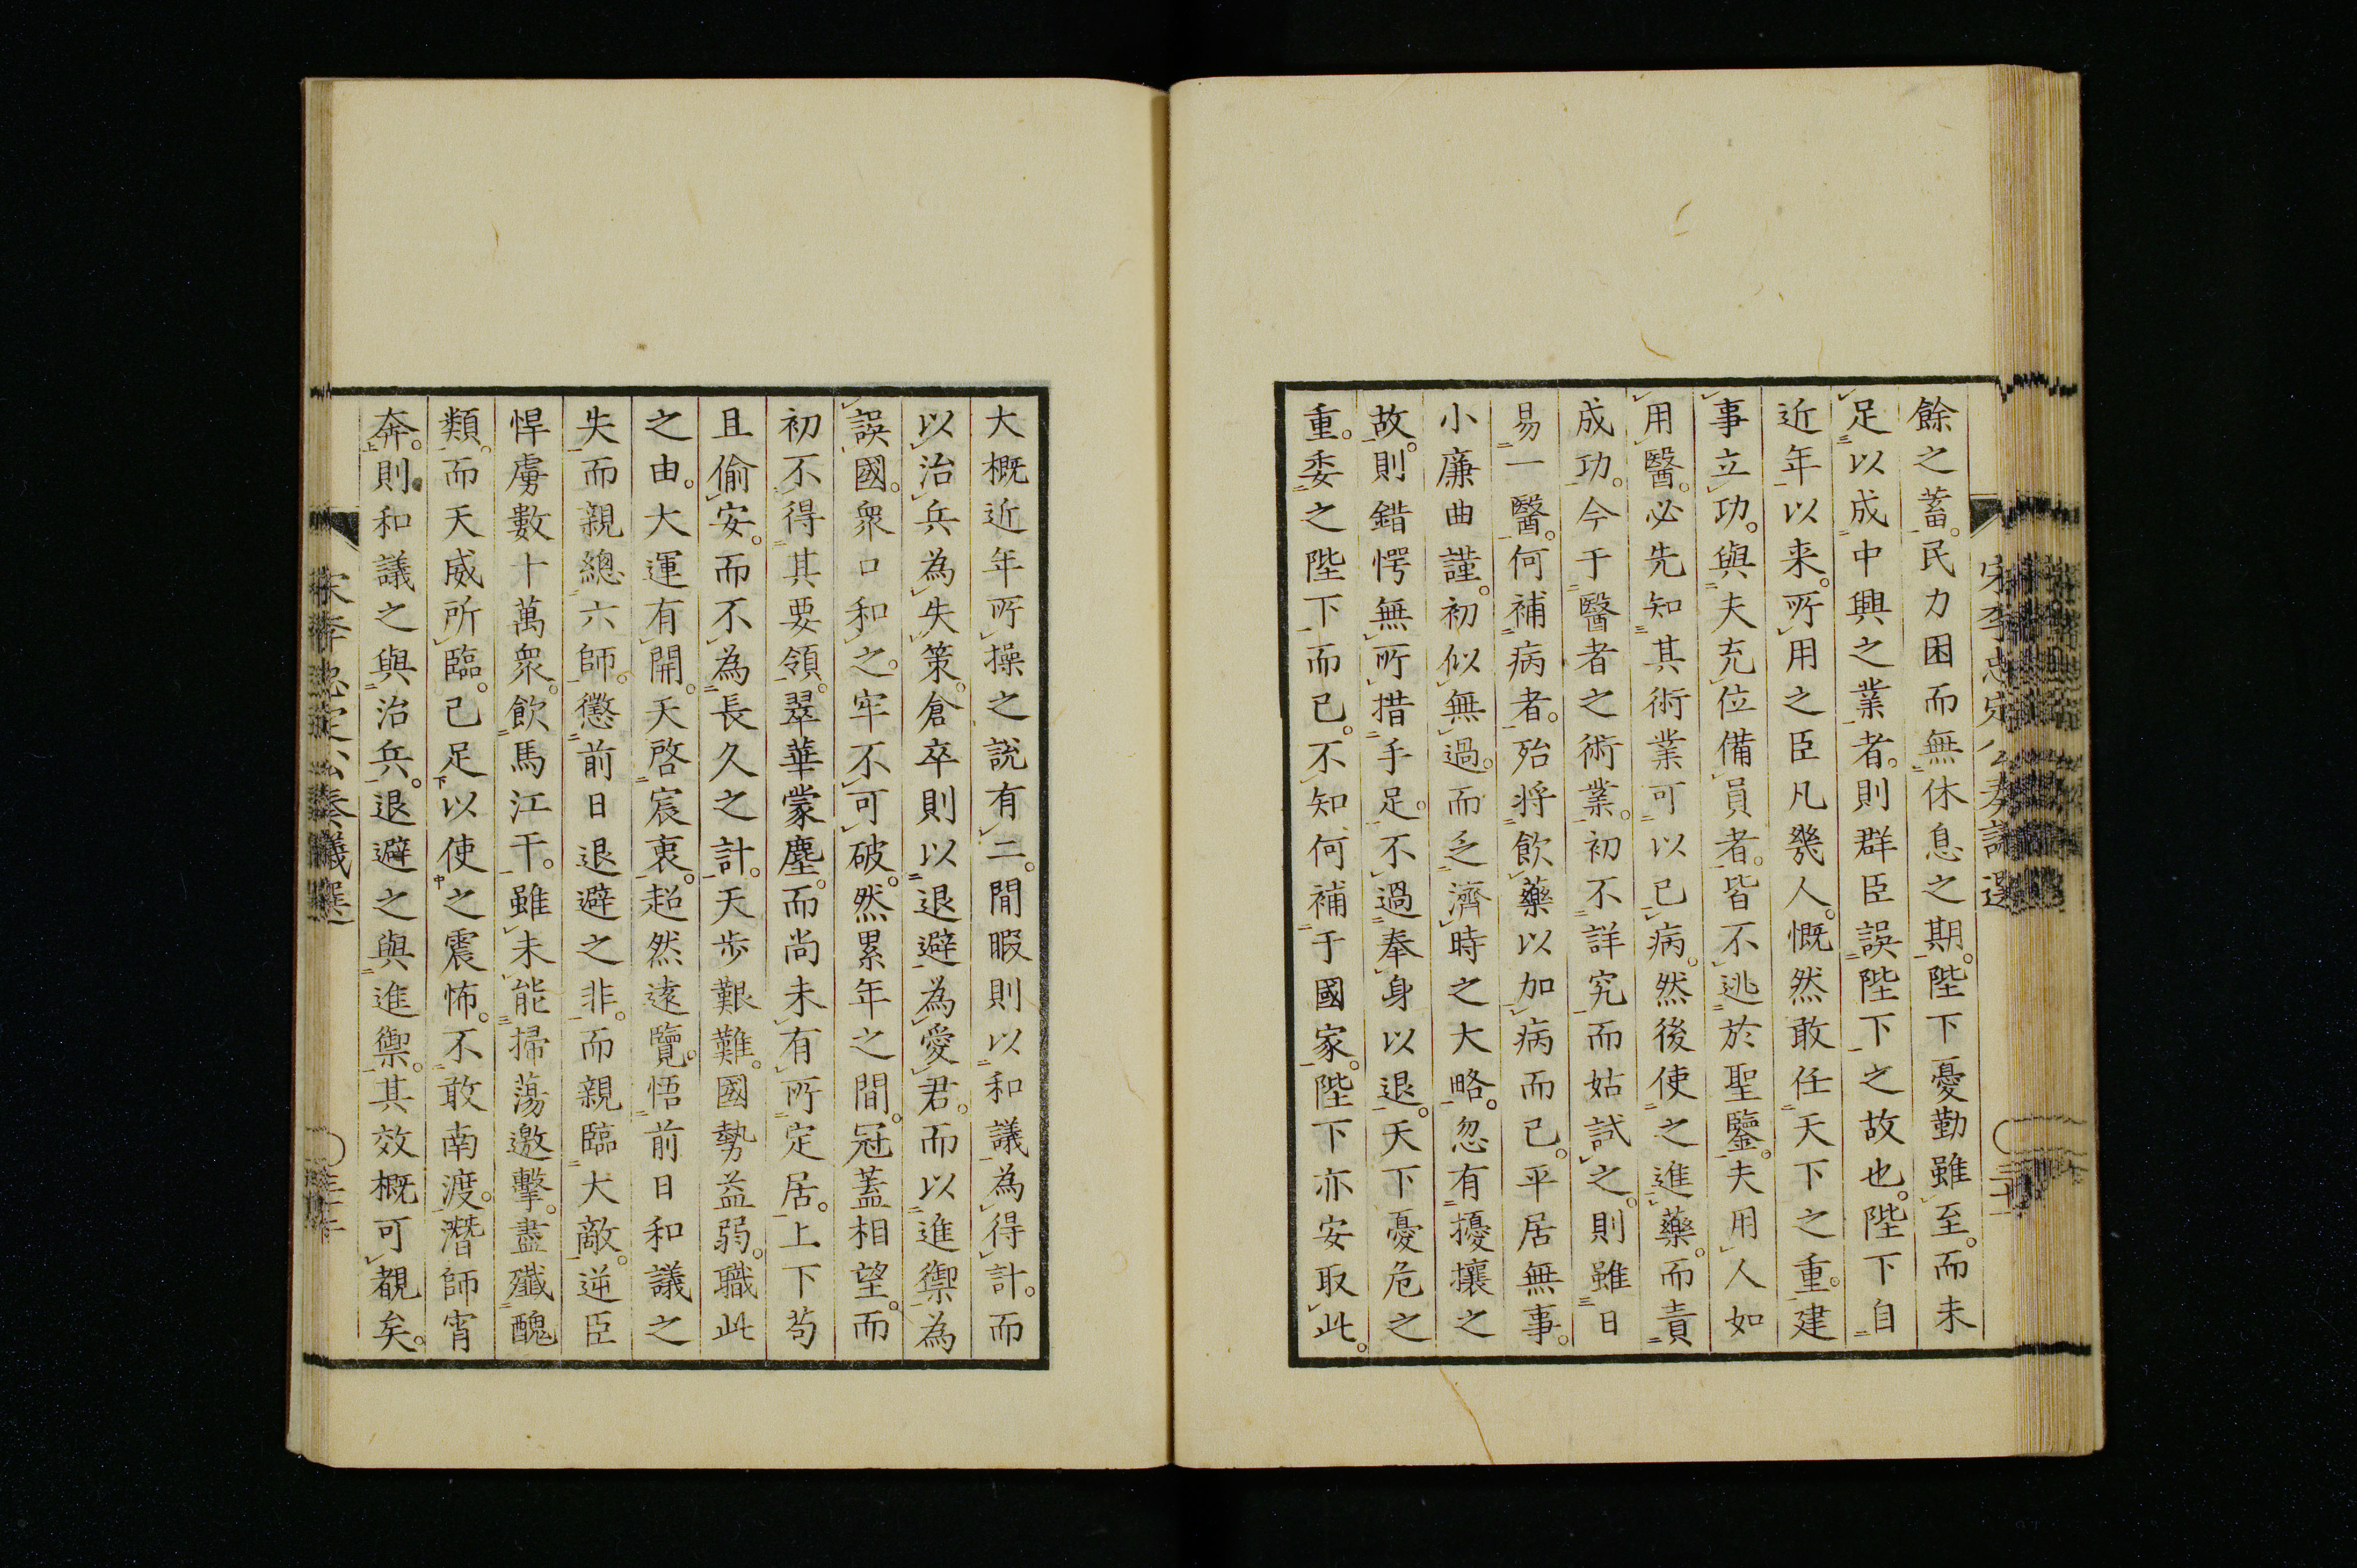 餘之蓄。民力困而無休息之期。陛下憂勤雖至。而未
足以成中興之業者。則群臣誤陛下之故也。陛下自
近年以来。所用之臣凡幾人。慨然敢任天下之重。建
事立功。與夫充位備員者。皆不逃於聖鑒。夫用人如
用醫。必先知其術業可以已病。然後使之進藥。而責
成功。今于醫者之術業。初不詳究而姑試之。則雖日
易一醫。何補病者。殆將飲藥以加病而已。平居無事。
小廉曲謹。初似無過。而乏濟時之大略。忽有擾攘之
故。則錯愕無所措手足。不過奉身以退。天下憂危之
重。委之陛下而已。不知何補于國家。陛下亦安取此。
大概近年所操之說有二。閒暇則以和議為得計。而
以治兵為失策。倉卒則以退避為愛君。而以進禦為
誤國。衆口和之。牢不可破。然累年之間。冠蓋相望。而
初不得其要領。翠華蒙塵。而尚未有所定居。上下苟
且偷安。而不為長久之計。天步艱難。國勢益弱。職此
之由。大運有開。天啓宸衷。超然遠覽。悟前日和議之
失而親總六師。懲前日退避之非。而親臨大敵。逆臣
悍虜數十萬衆。飲馬江干。雖未能掃蕩邀擊。盡殲醜
類。而天威所臨。已足以使之震怖。不敢南渡。潛師宵
奔。則和議之與治兵。退避之與進禦。其效概可覩矣。
宋李忠定公奏議選